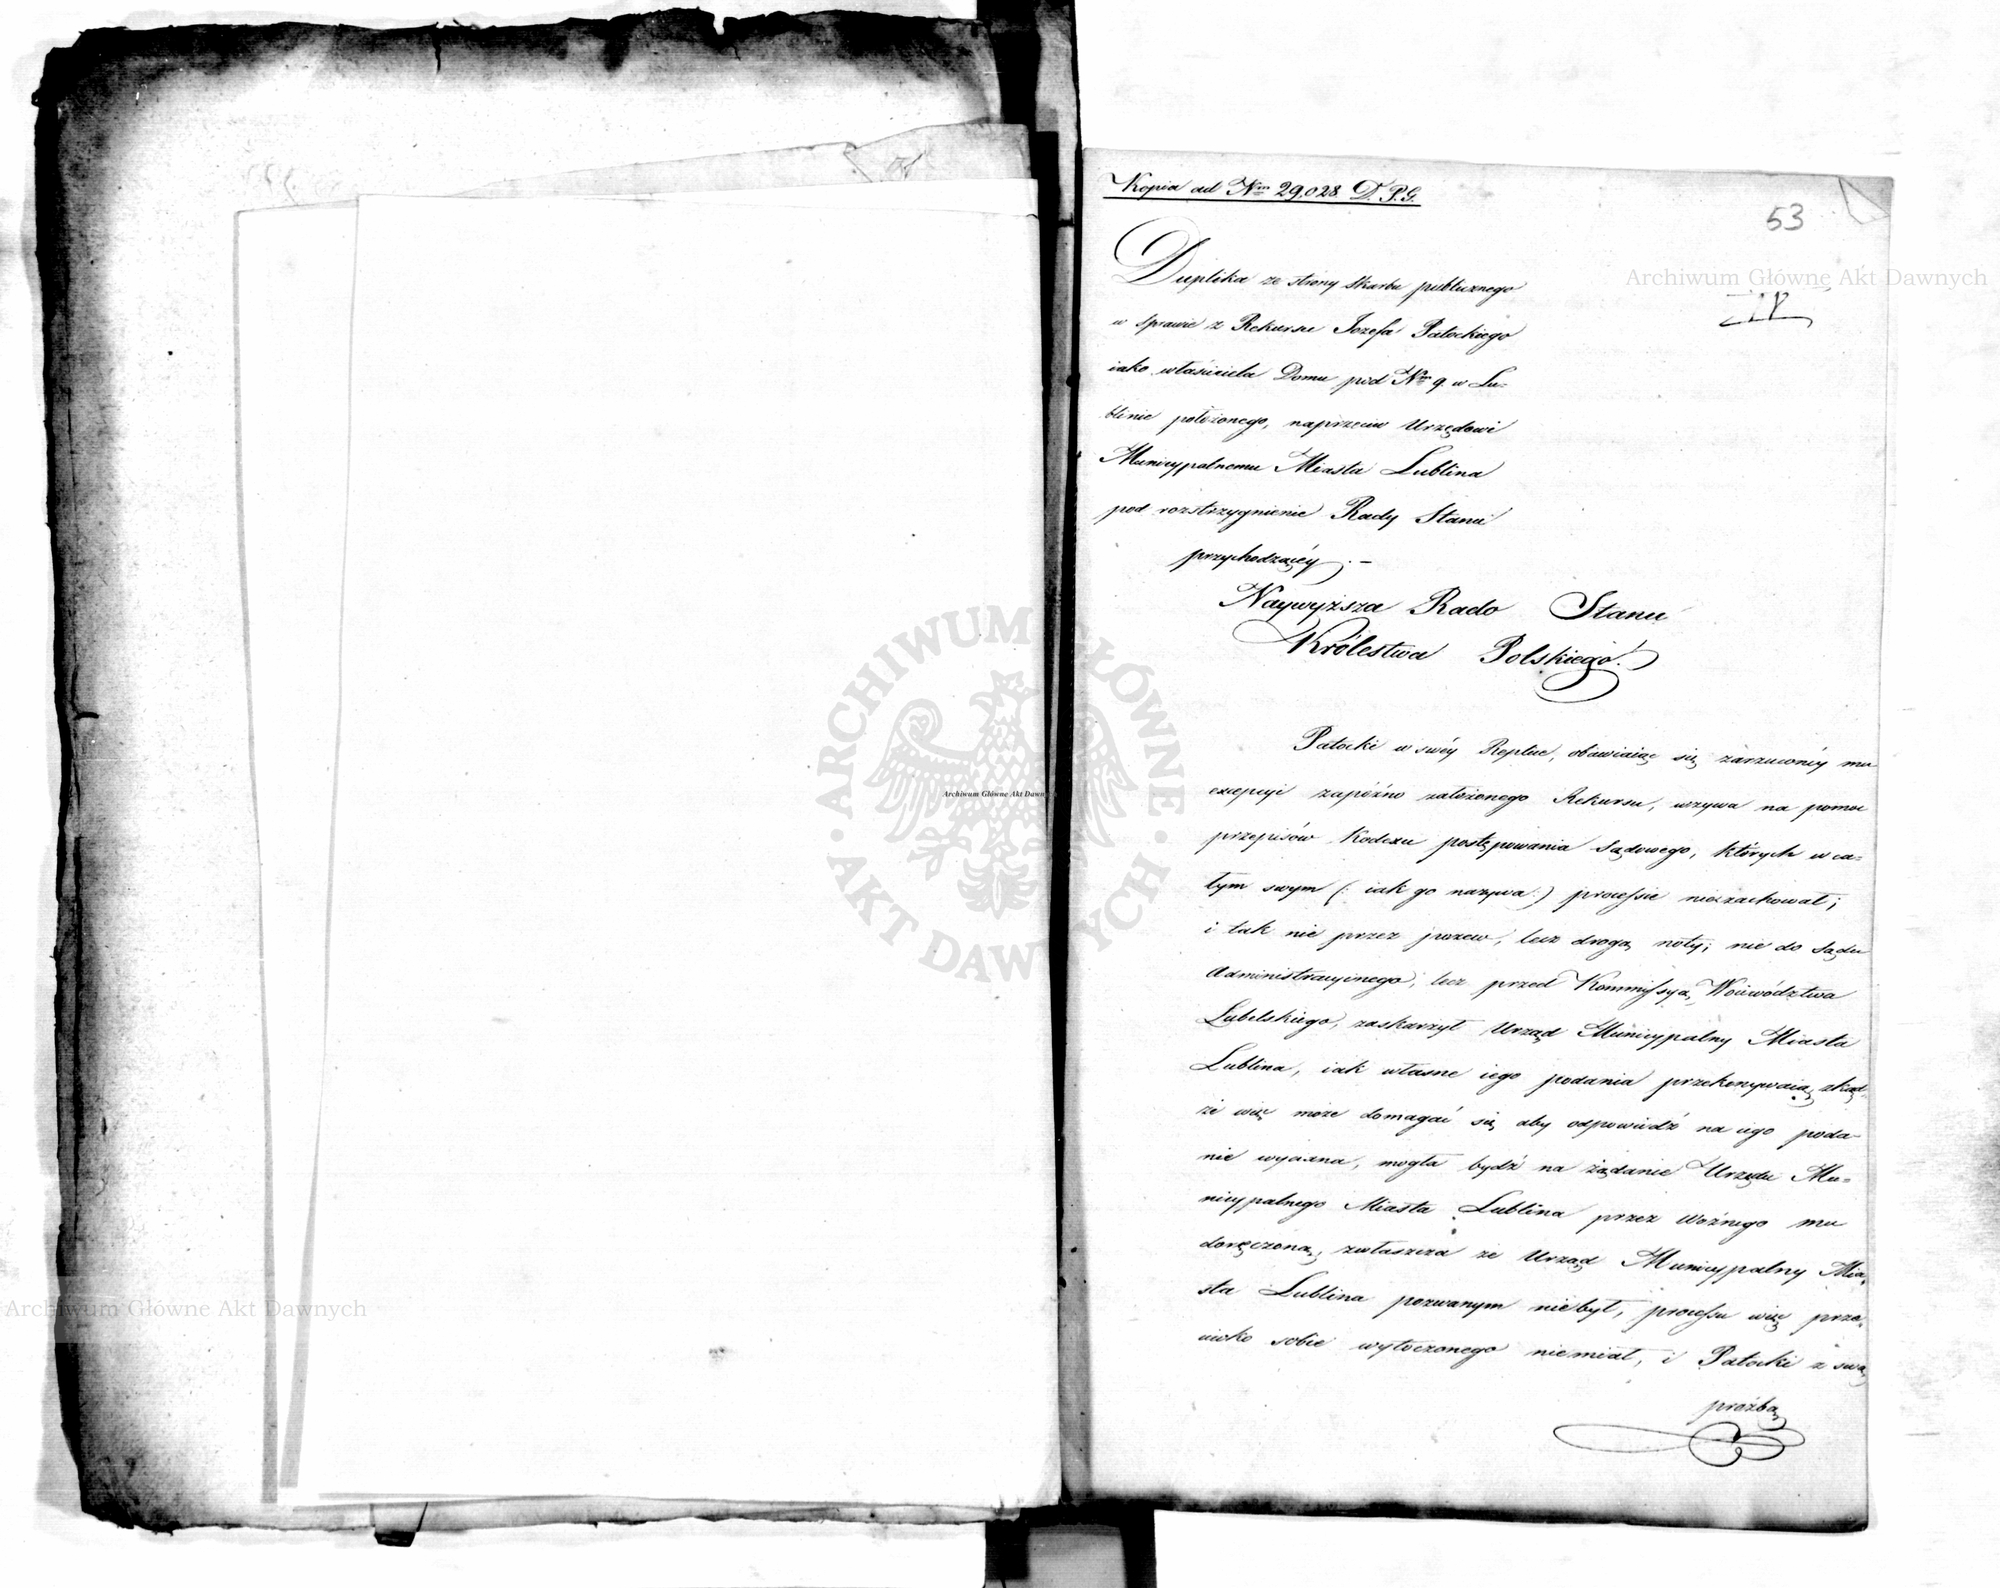 Kopia ad Nrm 29,028 D. P. G.
53
Duplika ze strony skarbu publicznego
w sprawie z Rekursu Jozefa Pałockiego
iako właściciela Domu pod Nrm 9. w Lu-
blinie położonego, naprzeciw Urzędowi
Municypalnemu Miasta Lublina
pod rozstrzygnienie Rady Stanu
przychodzącéy. –
Naywyższa Rado Stanu
Królestwa Polskiego!
Pałocki w swéy Replice, obawiaiąc się zarzuconéy mu
excepcyi zapóźno założonego Rekursu, wzywa na pomoc
przepisów Kodexu postępowania Sądowego, których w ca-
łym swym (: iak go nazywa :) processie niezachował;
i tak nie przez pozew, lecz drogą noty; nie do Sądu
Administracyinego, lecz przed Kommissyą Woiewództwa
Lubelskiego, zaskarżył Urząd Municypalny Miasta
Lublina, iak własne iego podania przekonywaią, zkąd-
że więc może domagać się aby odpowiedź na iego poda-
nie wydana, mogła bydź na żądanie Urzędu Mu-
nicypalnego Miasta Lublina przez Woźnego mu
doręczoną, zwłaszcza że Urząd Municypalny Mia-
sta Lublina pozwanym niebył, processu więc prze-
ciwko sobie wytoczonego niemiał, i Pałocki z swą
proźbą
Archiwum Główne Akt Dawnych
ARCHIWUM GŁÓWNE AKT DAWNYCH
Archiwum Główne Akt Dawnych
Archiwum Główne Akt Dawnych